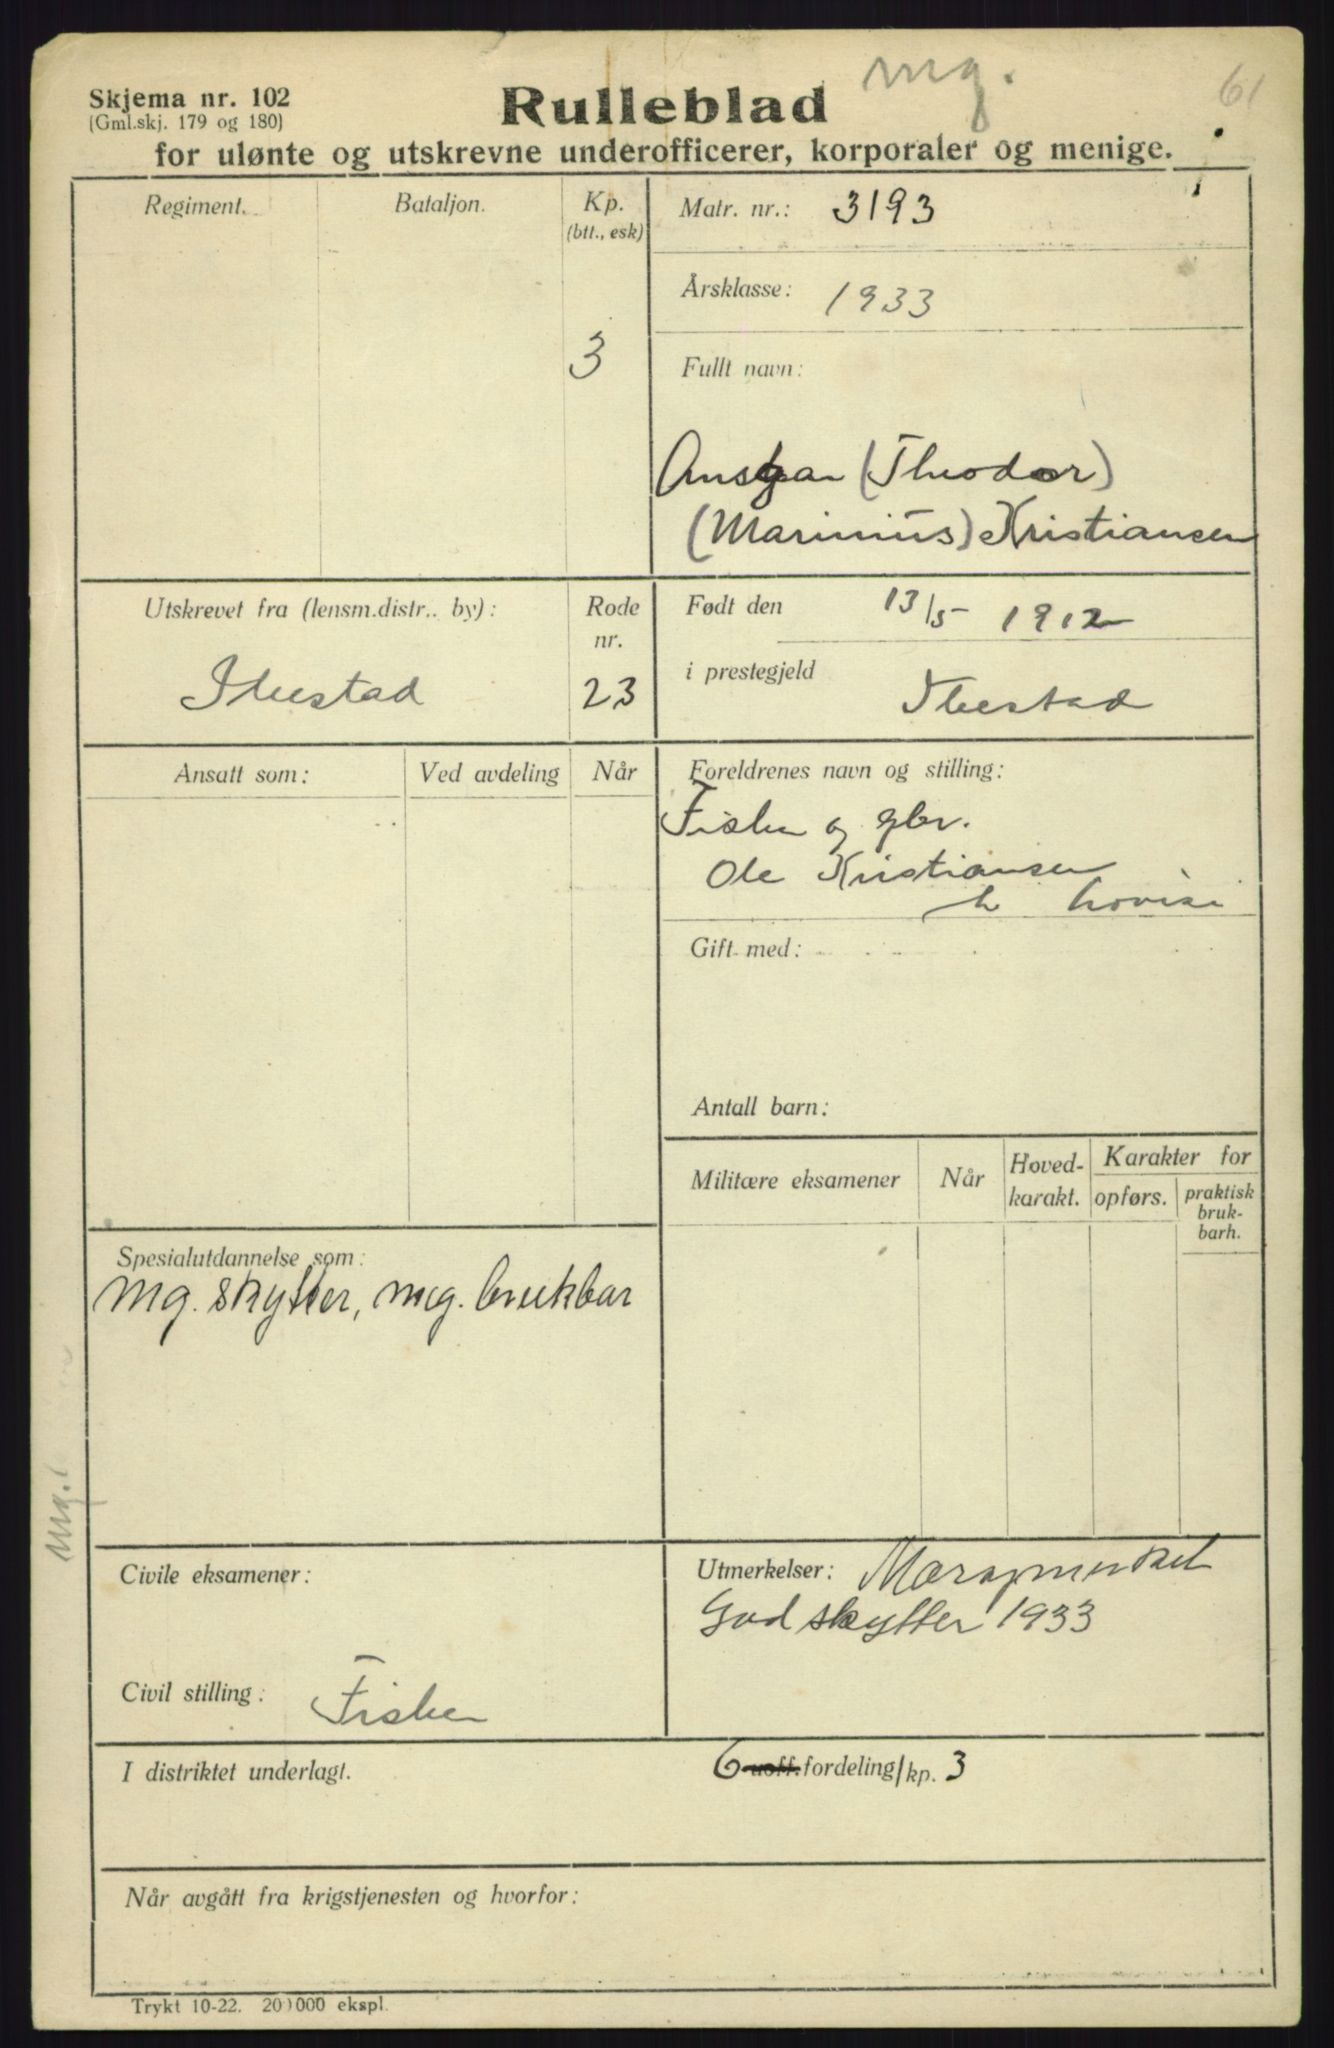 mg.
61
Skjema nr. 102
(Gml.skj. 179 og 180)
Rulleblad
for ulønte og utskrevne underofficerer, korporaler og menige.
Regiment.
Bataljon.
Kp.
(btt., esk)
3
Matr. nr.: 3193
Årsklasse: 1933
Fullt navn:
Ansgar (Theodor)
(Marinius) Kristiansen
Utskrevet fra (lensm.distr.. by):
Ibestad
Rode
nr.
23
Født den 13/5 1912
i prestegjeld Ibestad
Ansatt som:
Ved avdeling
Når
Foreldrenes navn og stilling:
Fisker og gbr.
Ole Kristiansen
h Lovise
Gift med:
Antall barn:
Militære eksamener
Når
Hoved-
karakt.
Karakter for
opførs.
praktisk
bruk-
barh.
Spesialutdannelse som:
Mg. skytter, mg. brukbar
Mg.
Civile eksamener:
Civil stilling: Fisker
Utmerkelser: Marsjmerket
God skytter 1933
I distriktet underlagt.
6 uoff. fordeling/kp. 3
Når avgått fra krigstjenesten og hvorfor:
Trykt 10-22. 20 000 ekspl.